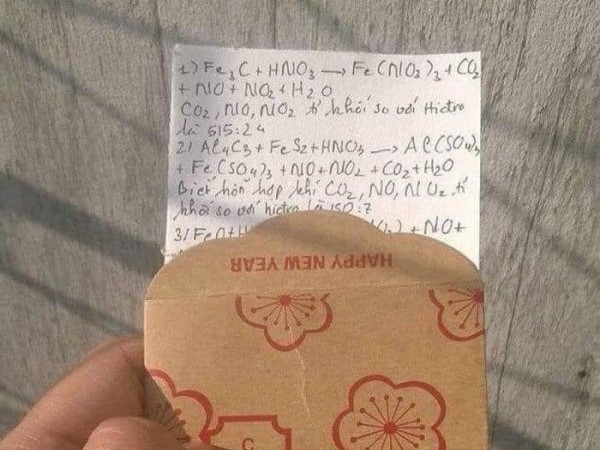 1) Fe3C + HNO3 → Fe(NO3)3 + CO2
+ NO + NO2 + H2O
CO2, NO, NO2 tỉ khối so với Hidro
là 515:24
2) Al4C3 + FeS2 + HNO3 → Al(SO4)3
+ Fe(SO4)3 + NO + NO2 + CO2 + H2O
Biết hỗn hợp khí CO2, NO, NO2 tỉ
khối so với hidro là 150:7
3) FeO + + NO +
HAPPY NEW YEAR
C